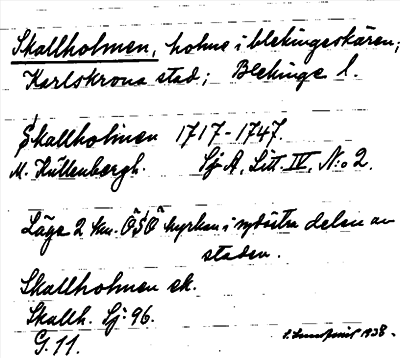 Skallholmen, holme i blekingeskären;
Karlskrona stad; Blekinge l.
Skallholmen 1717-1747.
M. Kullenbergh. Sj A, Litt. IV, N:o 2.
Läge 2 km. ÖSÖ kyrkan i sydöstra delen av
staden.
Skallholmen ek.
Skallh. Sj. 96.
G. 11.
1938.